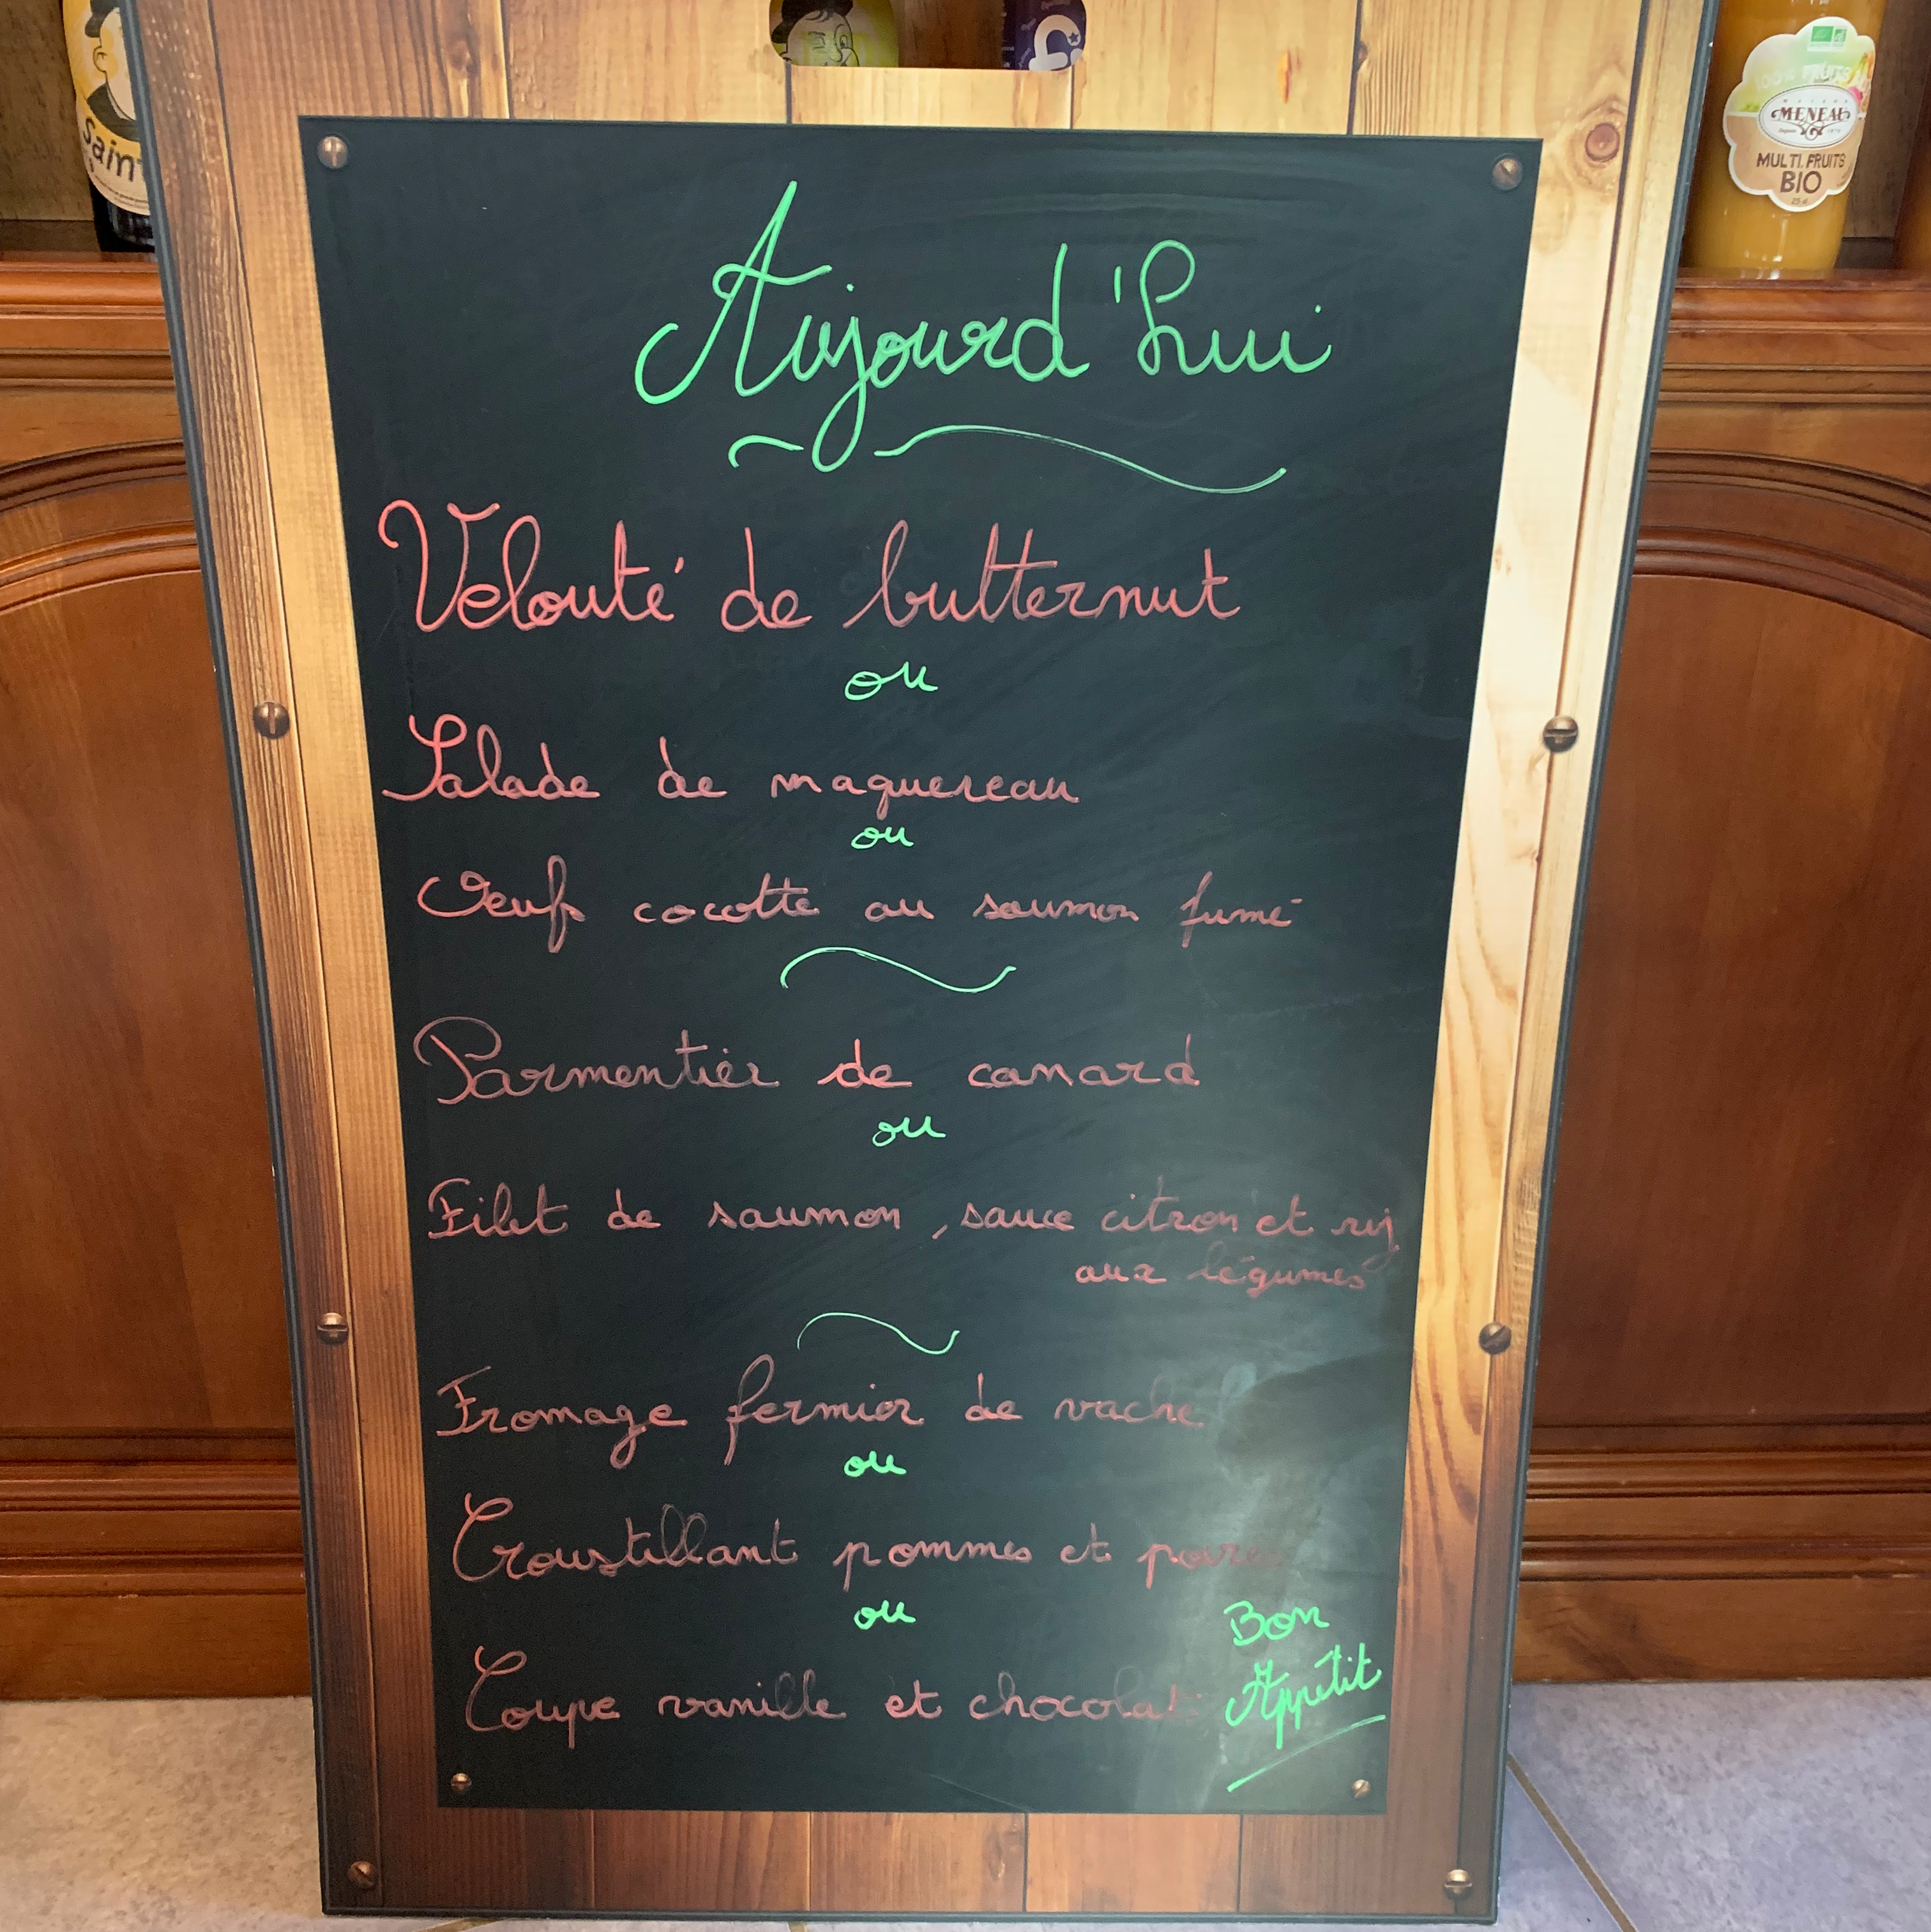 Sain
100% FRUITS
MENEAU
Depuis 1879
MULTI. FRUITS
BIO
25 cl
Aujourd'hui
Velouté de butternut
ou
Salade de maquereau
ou
Oeuf cocotte au saumon fumé
Parmentier de canard
ou
Filet de saumon, sauce citron et riz
aux légumes
Fromage fermier de vache
ou
Croustillant pommes et poires
ou
Coupe vanille et chocolat
Bon
Appétit